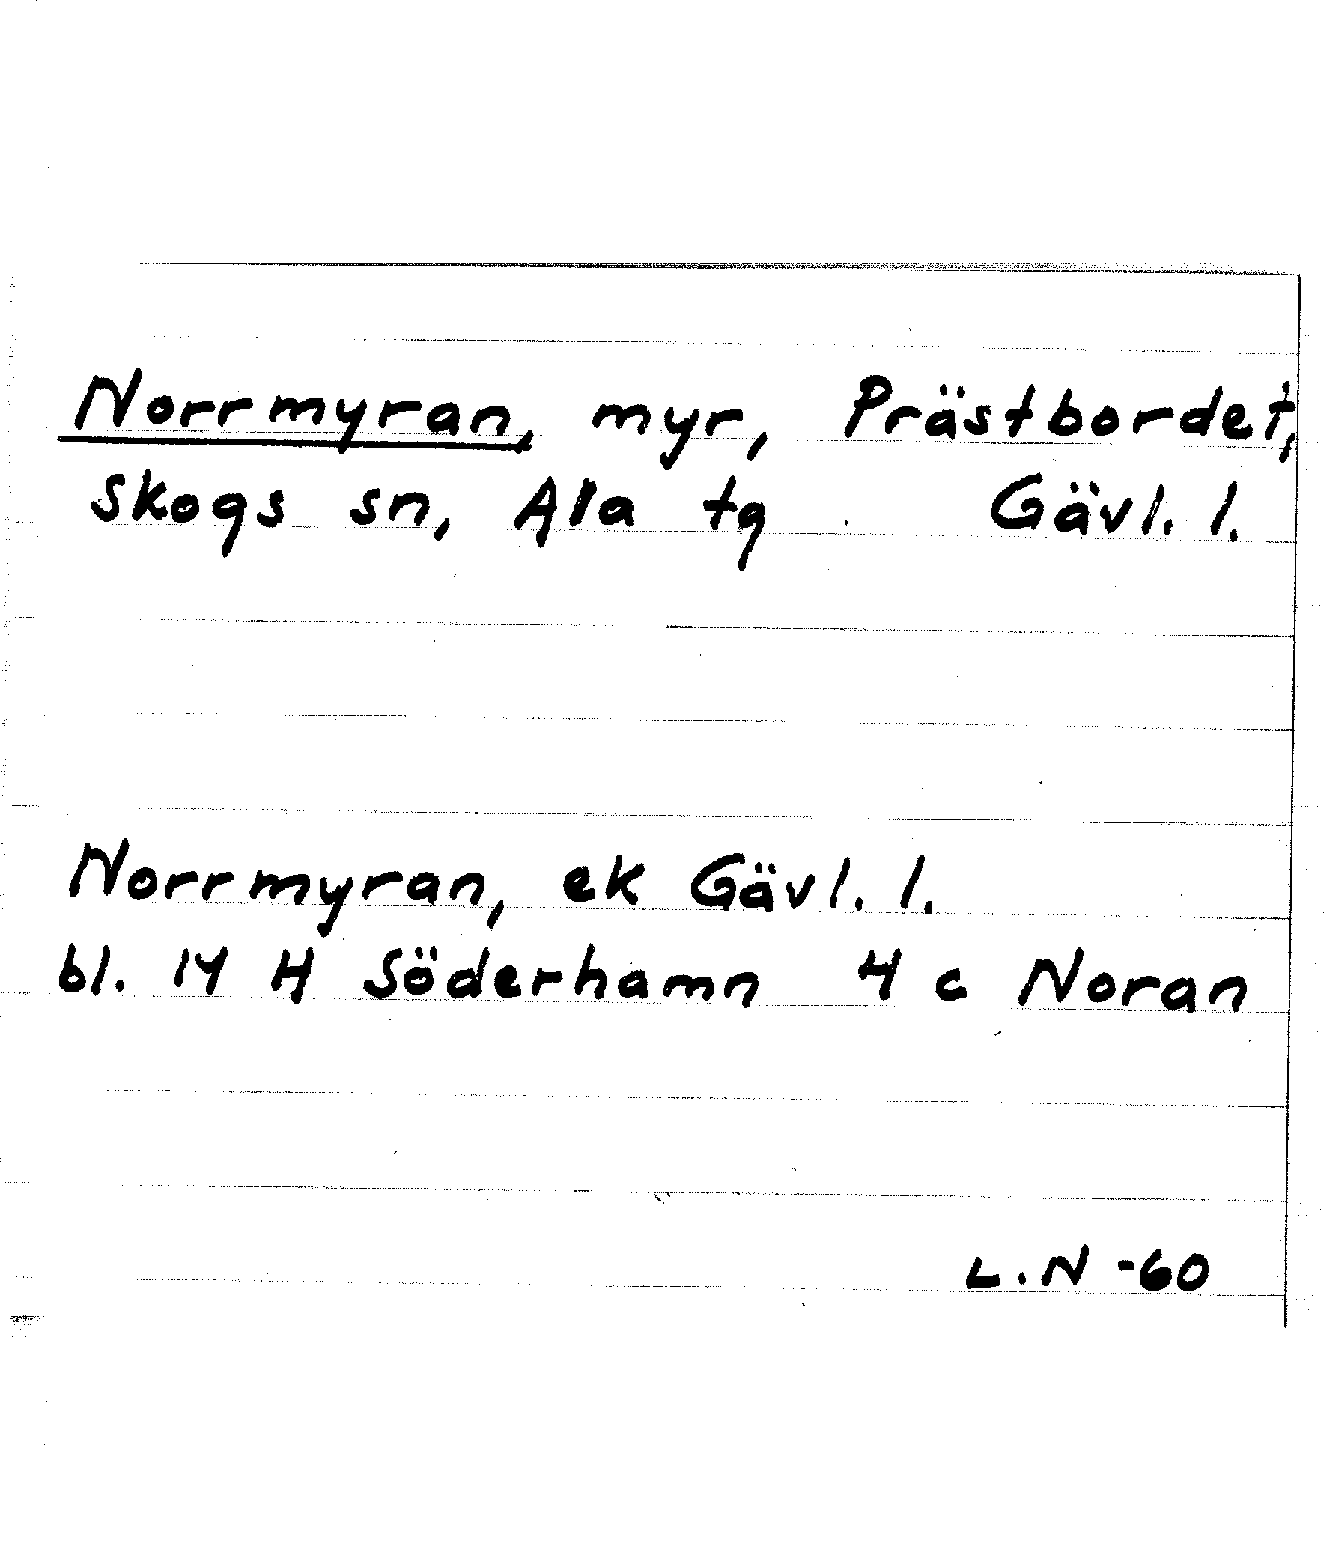 Norrmyran, myr, Prästbordet,
Skogs sn, Ala tg Gävl. l.
Norrmyran, ek Gävl. l.
bl. 14 H Söderhamn 4 c Noran
L.N -60